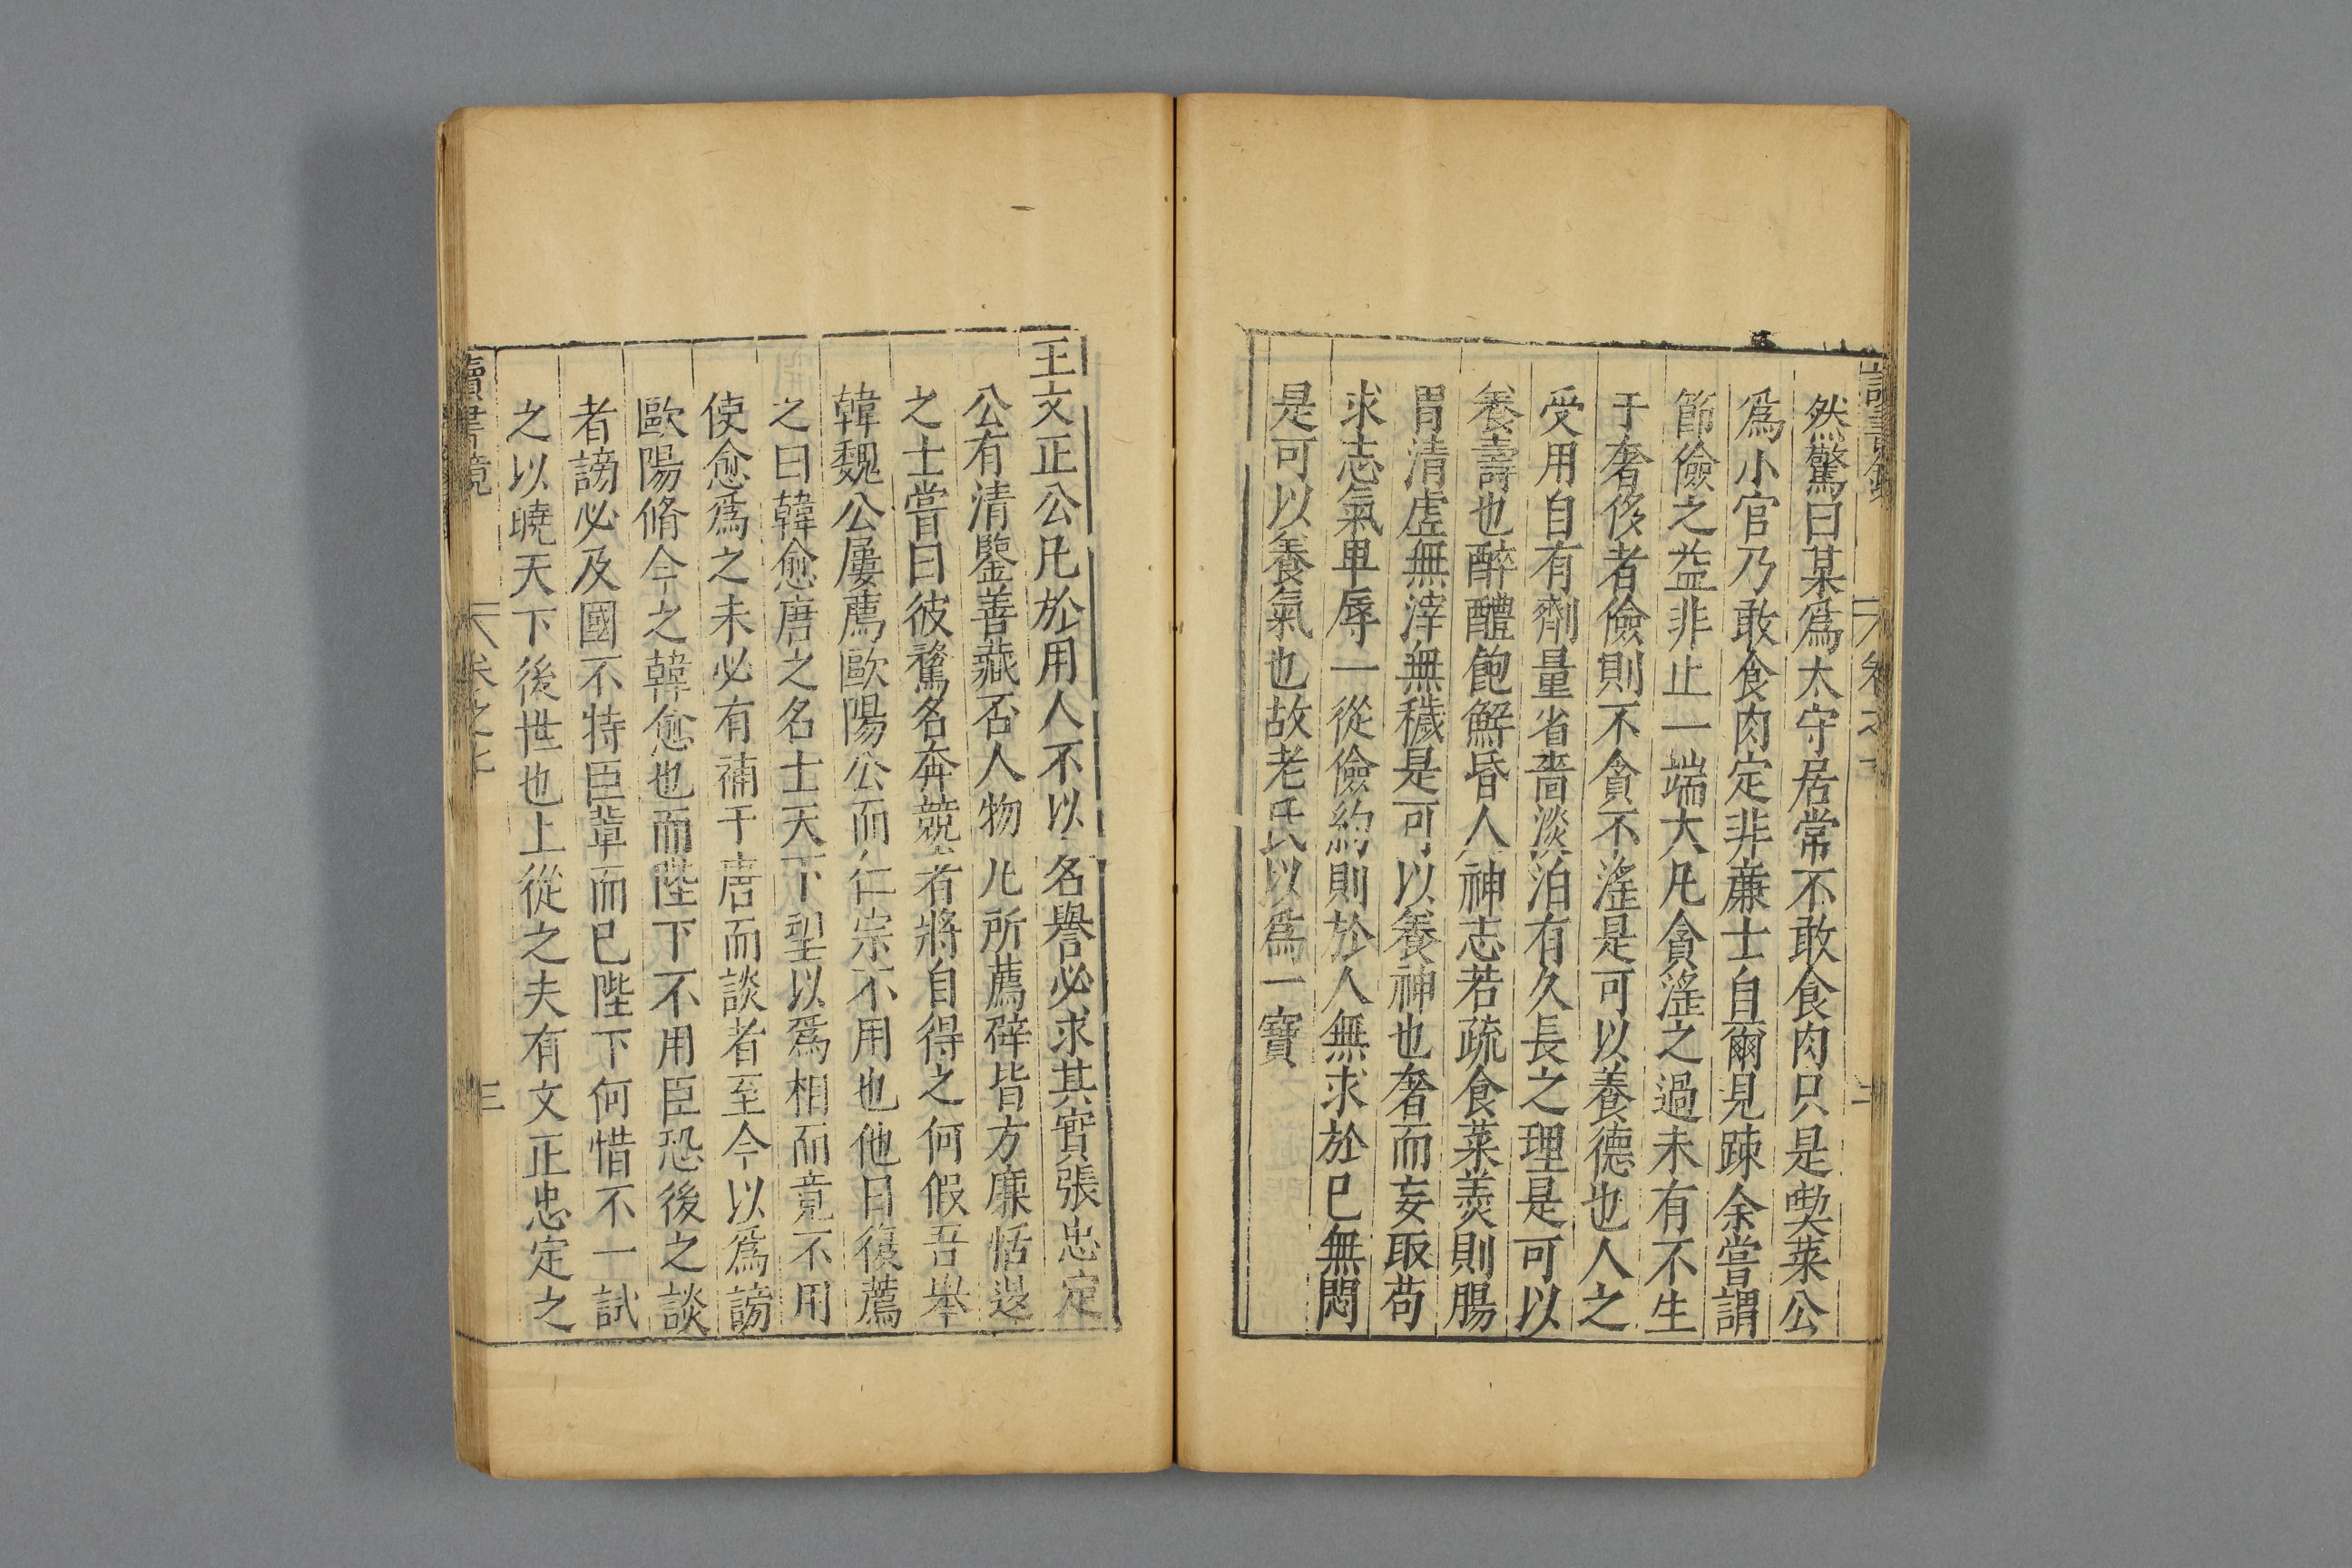 然驚曰某爲太守居常不敢食肉只是喫菜公
爲小官乃敢食肉定非廉士自爾見踈余嘗謂
節儉之益非止一端大凡貪淫之過未有不生
于奢侈者儉則不貪不淫是可以養德也人之
受用自有劑量省嗇淡泊有久長之理是可以
養壽也醉醲飽鮮昏人神志若疏食菜羹則腸
胃清虛無滓無穢是可以養神也奢而妄取苟
求志氣卑辱一從儉約則於人無求於已無悶
是可以養氣也故老氏以爲一寶
王文正公凡於用人不以名譽必求其實張忠定
公有清鑒善藏否人物凡所薦辟皆方廉恬退
之士嘗曰彼騖名奔競者將自得之何假吾舉
韓魏公屢薦歐陽公而仁宗不用也他日復薦
之曰韓愈唐之名士天下望以爲相而竟不用
使愈爲之未必有補于唐而談者至今以爲謗
歐陽脩今之韓愈也而陛下不用臣恐後之談
者謗必及國不特臣輩而已陛下何惜不一試
之以曉天下後世也上從之夫有文正忠定之
讀書鏡 卷之七 三